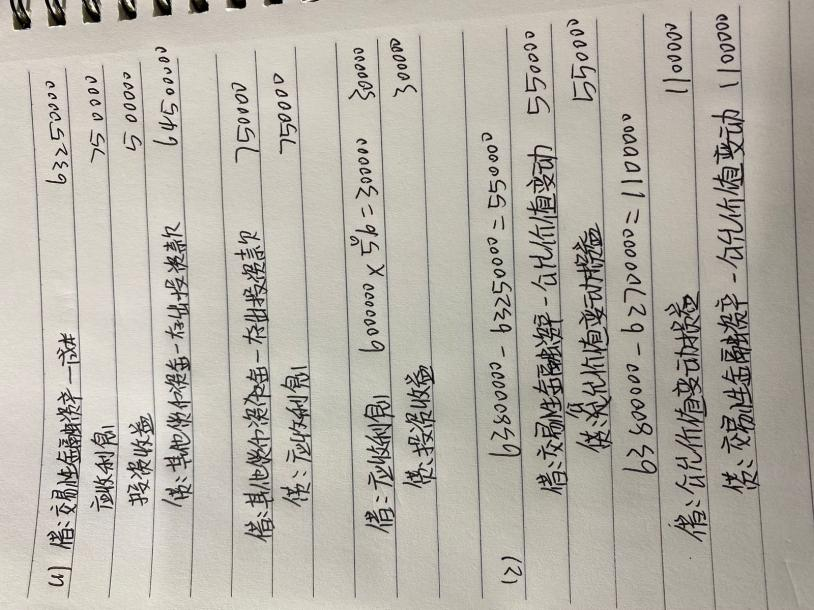 (1) 借:交易性金融资产—成本 63250000
应收利息 750000
投资收益 500000
贷:其他货币资金—存出投资款 64500000
借:其他货币资金—存出投资款 750000
贷:应收利息 750000
借:应收利息 6000000×5%=300000 300000
贷:投资收益 300000
(2) 63800000-63250000=550000
借:交易性金融资产-公允价值变动 550000
贷:公允价值变动损益 550000
63800000-62700000=1100000
借:公允价值变动损益 1100000
贷:交易性金融资产-公允价值变动 1100000